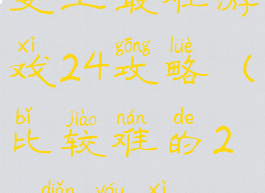 史上最难游
xì gōng lüè
戏24攻略（
bǐ jiào nán de
比较难的2
diǎn yóu xì